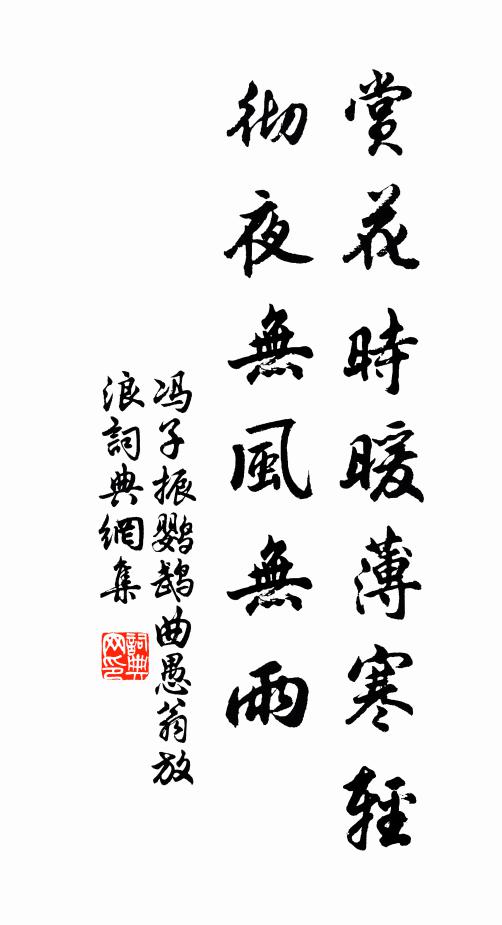 賞花時暖薄寒輕
彻夜無風無雨
冯子振鹦鹉曲愚翁放
浪詞典網集
詞典网印